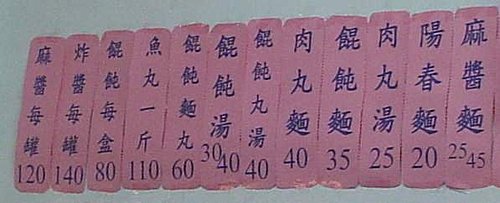 麻醬麵 25 45
陽春麵 20
肉丸湯 25
餛飩麵 35
肉丸麵 40
餛飩丸湯 40
餛飩湯 30 40
餛飩麵丸 60
魚丸一斤 110
餛飩每盒 80
炸醬每罐 140
麻醬每罐 120